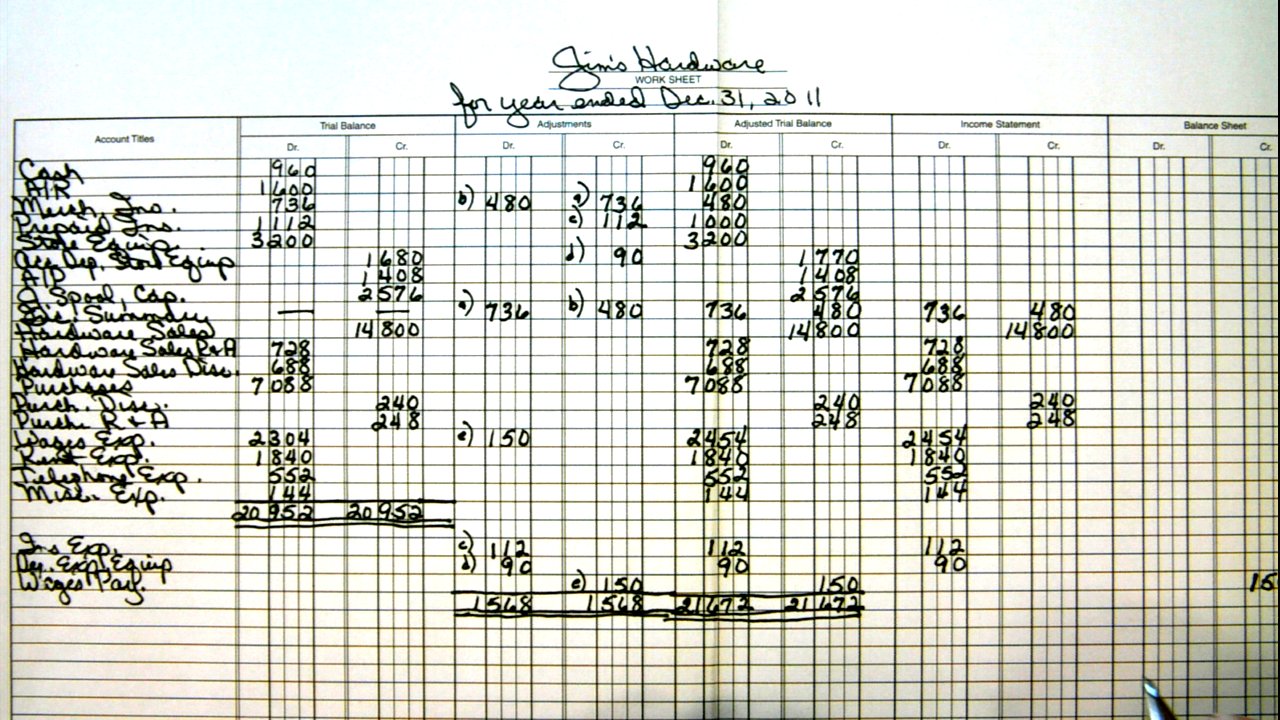 Jim's Hardware
WORK SHEET
for year ended Dec. 31, 2011
Account Titles Trial Balance Adjustments Adjusted Trial Balance Income Statement Balance Sheet
Dr. Cr. Dr. Cr. Dr. Cr. Dr. Cr. Dr. Cr.
Cash 960 960
A/R 1600 1600
Merch. Ins. 736 b) 480 a) 736 480
Prepaid Ins. 1112 c) 112 1000
Store Equip. 3200 3200
Acc. Dep. Store Equip 1680 d) 90 1770
A/P 1408 1408
J. Spool, Cap. 2576 2576
Inc. Summary — — a) 736 b) 480 736 480 736 480
Hardware Sales 14800 14800 14800
Hardware Sales R+A 728 728 728
Hardware Sales Disc. 688 688 688
Purchases 7088 7088 7088
Purch. Disc. 240 240 240
Purch. R+A 248 248 248
Wages Exp. 2304 e) 150 2454 2454
Rent Exp. 1840 1840 1840
Telephone Exp. 552 552 552
Misc. Exp. 144 144 144
20952 20952
Ins Exp. c) 112 112 112
Dep. Exp. Equip d) 90 90 90
Wages Pay. e) 150 150 15
1568 1568 21672 21672